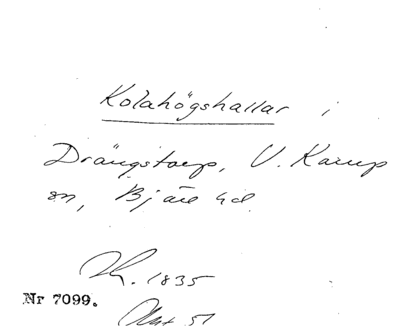 Kolahögshallar i
Drängstorp, V. Karup
sn, Bjäre hd
1835
Nr 7099.
51